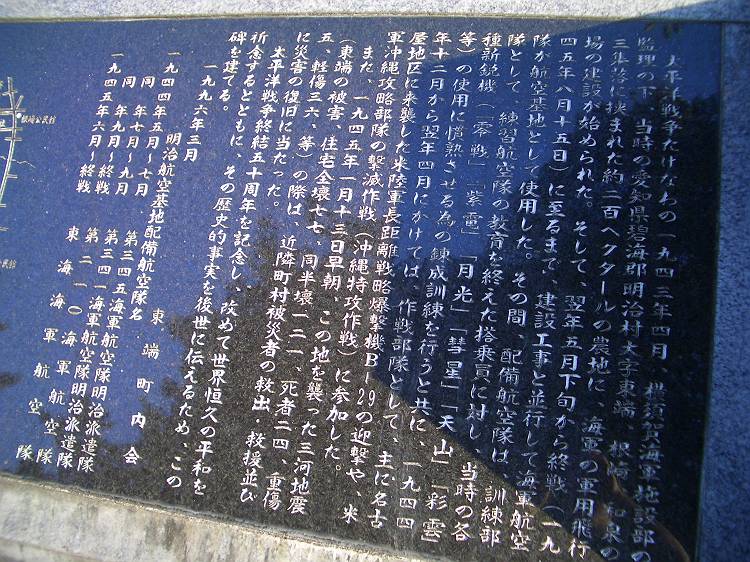 太平洋戦争たけなわの一九四三年四月、横須賀海軍施設部の
監理の下、当時の愛知県碧海郡明治村大字東端、根崎、和泉の
三集落に挟まれた約二百ヘクタールの農地に、海軍の軍用飛行
場の建設が始められた。そして、翌年五月下旬から終戦（一九
四五年八月十五日）に至るまで、建設工事と並行して海軍航空
隊が航空基地として使用した。その間、配備航空隊は、訓練部
隊として、練習航空隊の教育を終えた搭乗員に対し、当時の各
種新鋭機（「零戦」「紫電」「月光」「彗星」「天山」「彩雲」
等）の使用に慣熟させる為の錬成訓練を行うと共に、一九四四
年十二月から翌年四月にかけては、作戦部隊として、主に名古
屋地区に来襲した米陸軍長距離戦略爆撃機B-29の迎撃や、米
軍沖縄攻略部隊の撃滅作戦（沖縄特攻作戦）に参加した。
また、一九四五年一月十三日早朝、この地を襲った三河地震
（東端の被害、住宅全壊七七、同半壊一二一、死者二四、重傷
五、軽傷三六、等）の際は、近隣町村被災者の救出・救援並び
に災害の復旧に当たった。
太平洋戦争終結五十周年を記念し、改めて世界恒久の平和を
祈念するとともに、その歴史的事実を後世に伝えるため、この
碑を建てる。
一九九六年三月
東端町内会
明治航空基地配備航空隊名
一九四四年五月〜七月 第三四五海軍航空隊明治派遣隊
同 年七月〜九月 第三四一海軍航空隊明治派遣隊
同 年九月〜終戦 第二一〇海軍航空隊
一九四五年六月〜終戦 東海海軍航空隊
根崎公民館
公民館